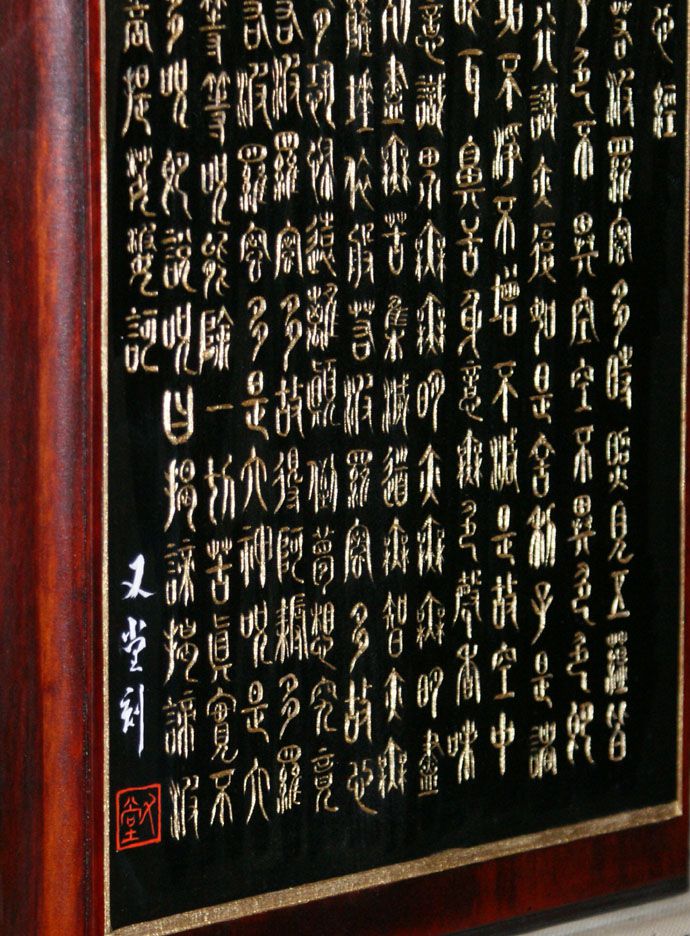 心經
若波羅蜜多時照見五蘊皆
子色不異空空不異色色即
行識亦復如是舍利子是諸
垢不淨不增不減是故空中
眼耳鼻舌身意無色聲香味
意識界無無明亦無無明盡
死盡無苦集滅道無智亦無
薩埵依般若波羅蜜多故心
有恐怖遠離顛倒夢想究竟
若波羅蜜多故得阿耨多羅
若波羅蜜多是大神咒是大
等等咒能除一切苦真實不
多咒即說咒曰揭諦揭諦波
菩提薩婆訶
又堂刻
又堂